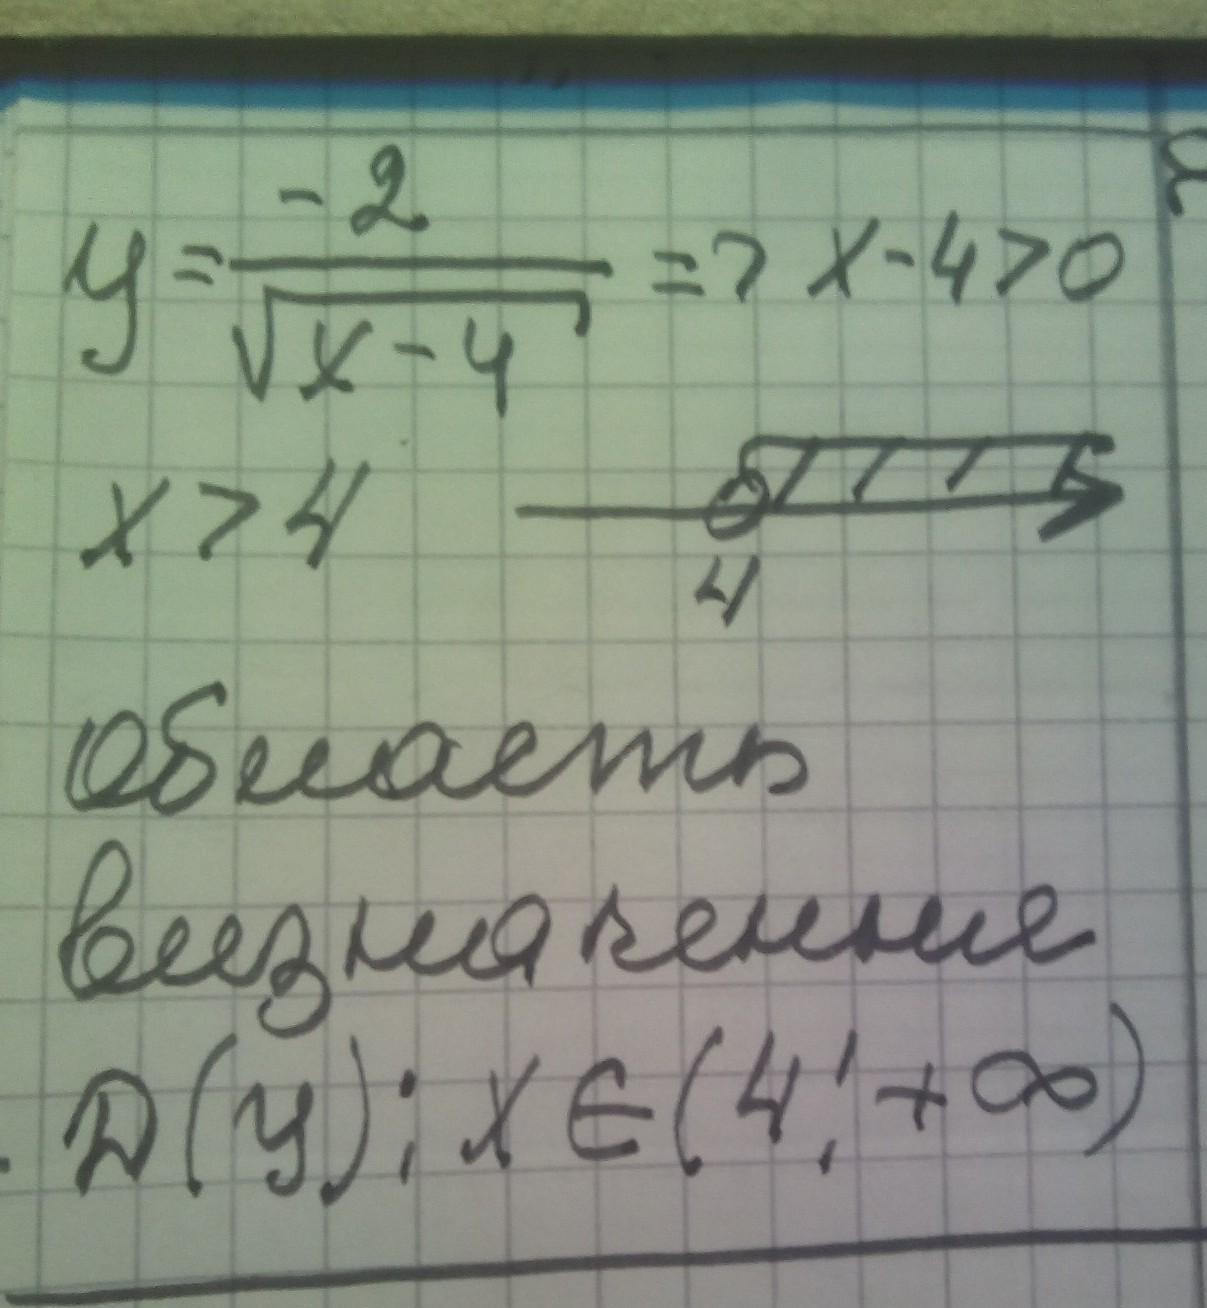 y = -2 / √(x - 4) => x - 4 > 0
x > 4
4
область
визначення
D(y): x ∈ (4; +∞)